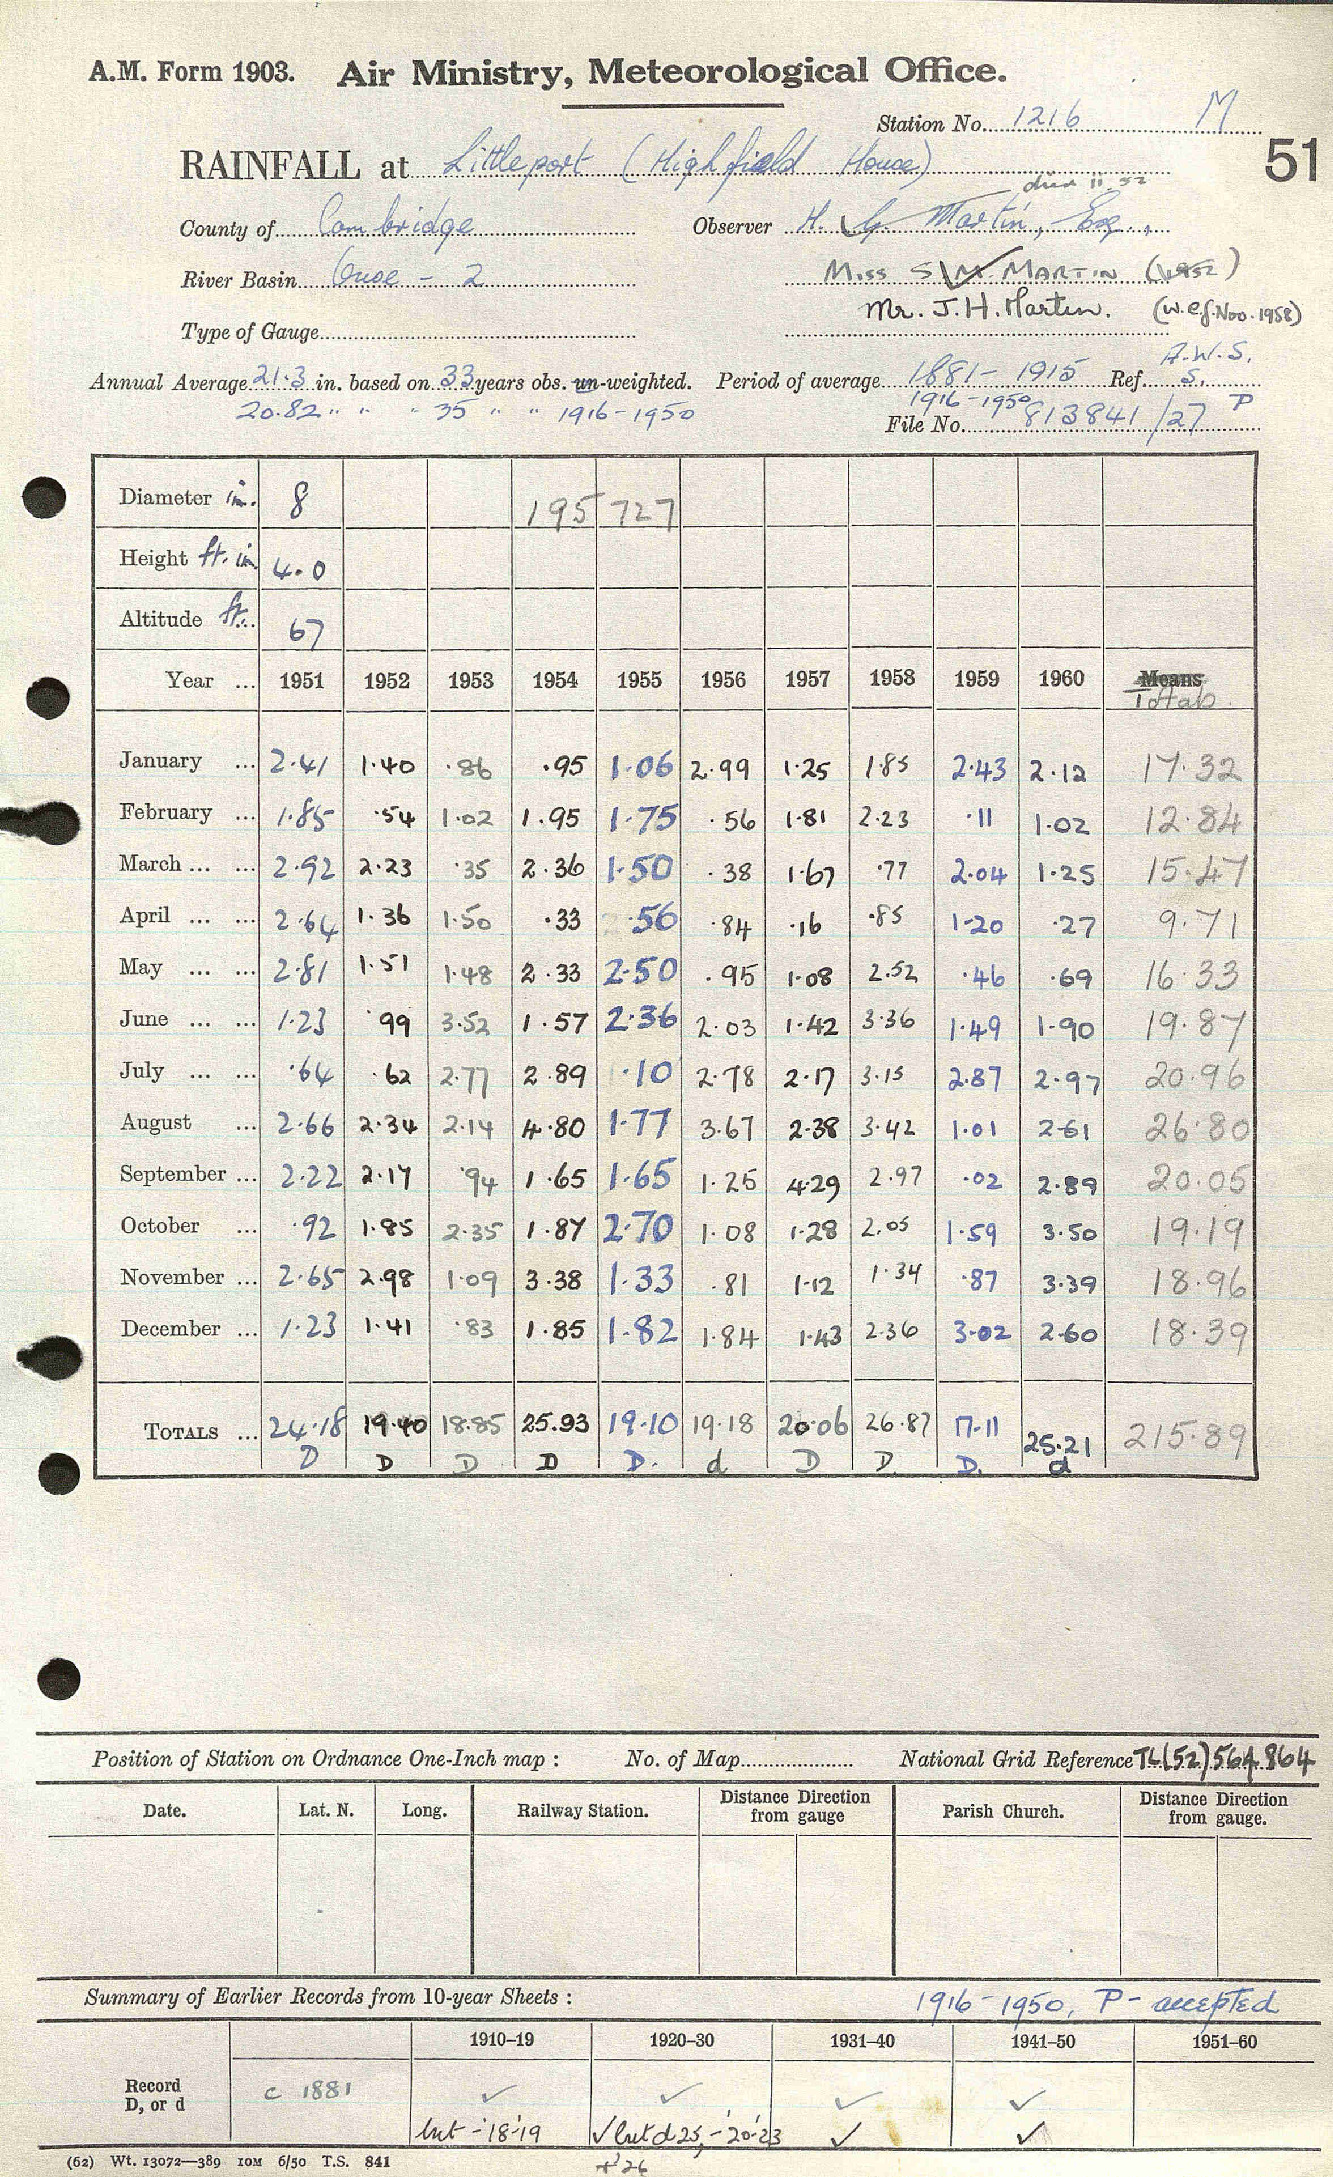 A.M. Form 1903. Air Ministry, Meteorological Office.
Station No. 1216 M
RAINFALL at Littleport (Highfield House) 51
died 11.52
County of Cambridge Observer H. G. Martin, Esq.,
River Basin Ouse - 2 Miss S.M. MARTIN (1952)
Mr. J.H. Martin. (w.e.f. Nov. 1958)
Type of Gauge
A.W.S.
Annual Average 21.3 in. based on 33 years obs. un-weighted. Period of average 1881-1915 Ref. S.
20.82 " " " 35 " " 1916-1950 1916-1950 P
File No. 813841/27
Diameter in. 8 195 727
Height ft. in. 4.0
Altitude ft. 67
Year ... 1951 1952 1953 1954 1955 1956 1957 1958 1959 1960 Means
Totals
January ... 2.41 1.40 .86 .95 1.06 2.99 1.25 1.85 2.43 2.12 17.32
February ... 1.85 .54 1.02 1.95 1.75 .56 1.81 2.23 .11 1.02 12.84
March ... ... 2.92 2.23 .35 2.36 1.50 .38 1.67 .77 2.04 1.25 15.47
April ... ... 2.64 1.36 1.50 .33 .56 .84 .16 .85 1.20 .27 9.71
May ... ... 2.81 1.51 1.48 2.33 2.50 .95 1.08 2.52 .46 .69 16.33
June ... ... 1.23 .99 3.52 1.57 2.36 2.03 1.42 3.36 1.49 1.90 19.87
July ... ... .64 .62 2.77 2.89 .10 2.78 2.17 3.15 2.87 2.97 20.96
August ... 2.66 2.34 2.14 4.80 1.77 3.67 2.38 3.42 1.01 2.61 26.80
September ... 2.22 2.17 .94 1.65 1.65 1.25 4.29 2.97 .02 2.89 20.05
October ... .92 1.85 2.35 1.87 2.70 1.08 1.28 2.05 1.59 3.50 19.19
November ... 2.65 2.98 1.09 3.38 1.33 .81 1.12 1.34 .87 3.39 18.96
December ... 1.23 1.41 .83 1.85 1.82 1.84 1.43 2.36 3.02 2.60 18.39
TOTALS ... 24.18 19.40 18.85 25.93 19.10 19.18 20.06 26.87 17.11 25.21 215.89
D D D D D. d D D. D. d
Position of Station on Ordnance One-Inch map : No. of Map National Grid Reference TL(52)564.864
Date. Lat. N. Long. Railway Station. Distance Direction from gauge Parish Church. Distance Direction from gauge.
Summary of Earlier Records from 10-year Sheets : 1916-1950, P - accepted
1910–19 1920–30 1931–40 1941–50 1951–60
Record D, or d c 1881 ✓ ✓ ✓ ✓
but -'18'19 ✓ but d 25, -'20-'23 ✓ ✓
+'26
(62) Wt. 13072—389 10M 6/50 T.S. 841